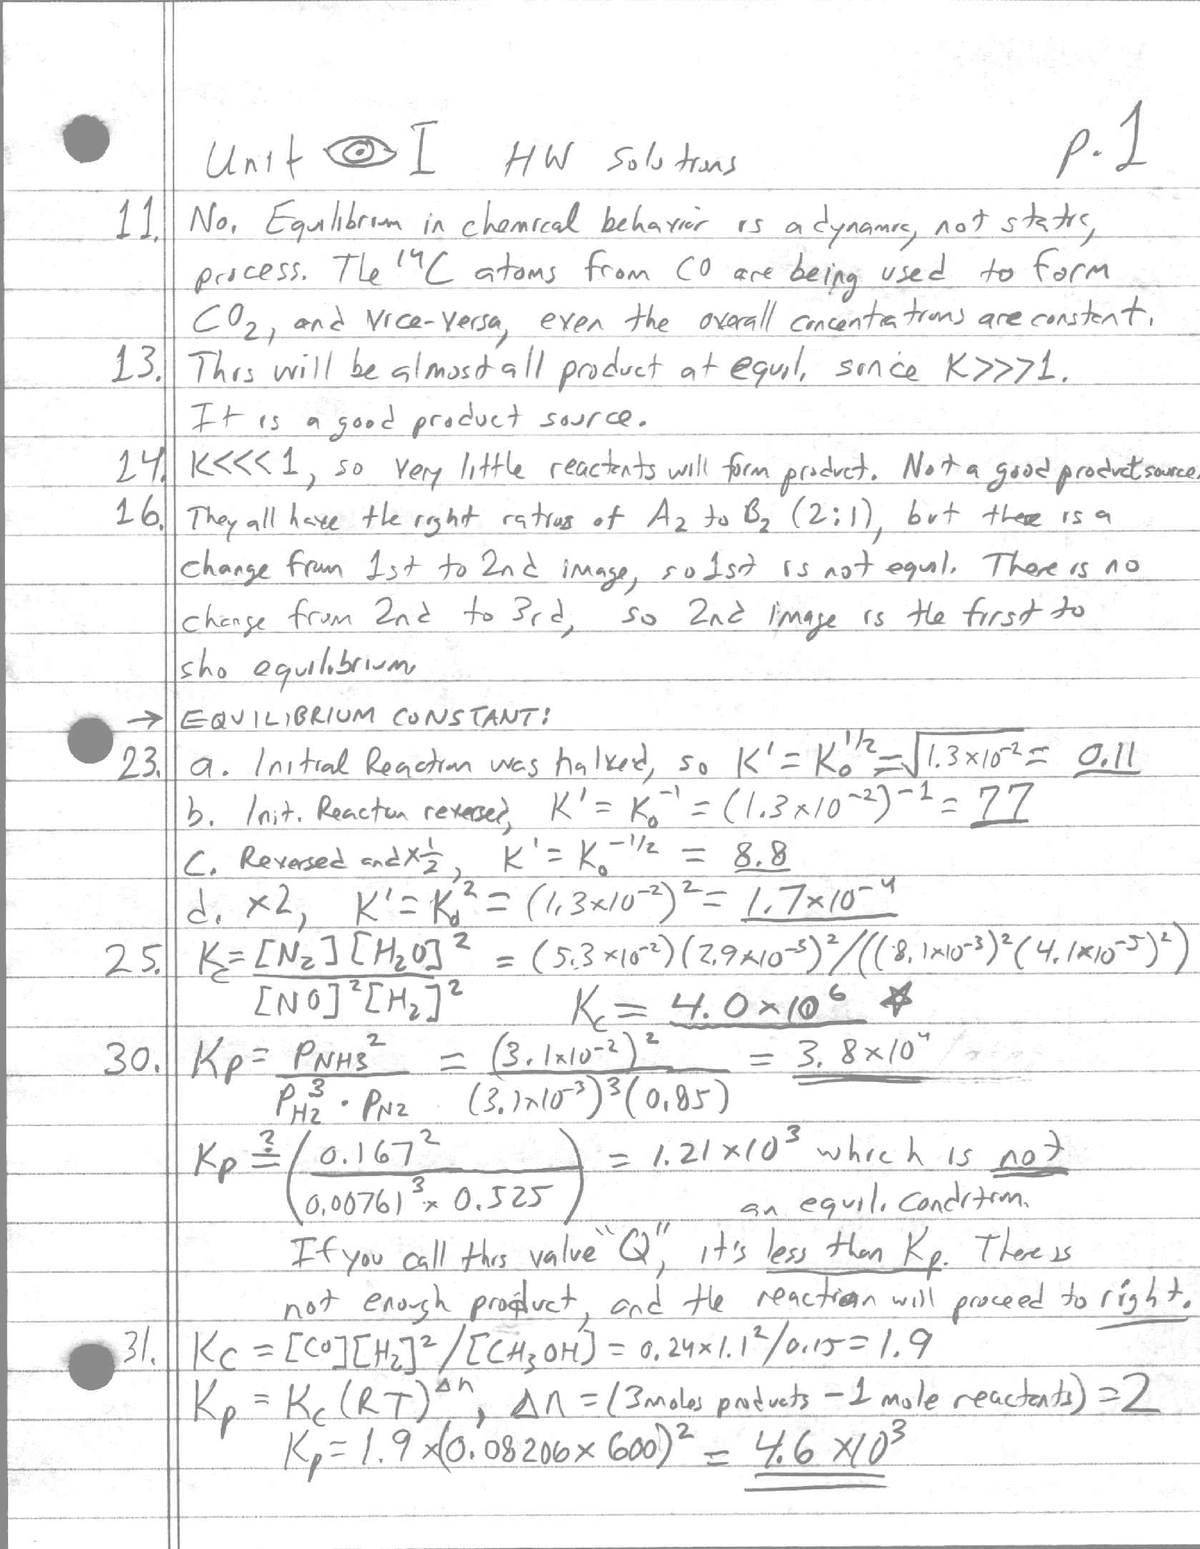 Unit I HW Solutions p. 1
11. No. Equilibrium in chemical behavior is a dynamic, not static,
process. The ¹⁴C atoms from CO are being used to form
CO₂, and vice-versa, even the overall concentrations are constant.
13. This will be almost all product at equil, since K>>>1.
It is a good product source.
14. K<<<1, so very little reactants will form product. Not a good product source.
16. They all have the right ratios of A₂ to B₂ (2:1), but there is a
change from 1st to 2nd image, so 1st is not equil. There is no
change from 2nd to 3rd, so 2nd image is the first to
sho equilibrium
→ EQUILIBRIUM CONSTANT:
23. a. Initial Reaction was halved, so K' = K₀^1/2 = √1.3×10⁻² = 0.11
b. Init. Reaction reversed, K' = K₀⁻¹ = (1.3×10⁻²)⁻¹ = 77
c. Reversed and ×1/2, K' = K₀^-1/2 = 8.8
d. ×2, K' = K₀² = (1.3×10⁻²)² = 1.7×10⁻⁴
25. Kc = [N₂][H₂O]² / [NO]²[H₂]² = (5.3×10⁻²)(2.9×10⁻³)²/((8.1×10⁻³)²(4.1×10⁻⁵)²)
Kc = 4.0×10⁶ ☆
30. Kp = P_NH3² / P_H2³ · P_N2 = (3.1×10⁻²)² / (3.1×10⁻³)³(0.85) = 3.8×10⁴
Kp ≟ (0.167² / 0.00761³ × 0.525) = 1.21×10³ which is not
an equil. condition.
If you call this value "Q", it's less than Kp. There is
not enough product, and the reaction will proceed to right.
31. Kc = [CO][H₂]²/[CH₃OH] = 0.24×1.1²/0.15 = 1.9
Kp = Kc(RT)^Δn, Δn = (3 moles products – 1 mole reactants) = 2
Kp = 1.9×(0.08206×600)² = 4.6×10³